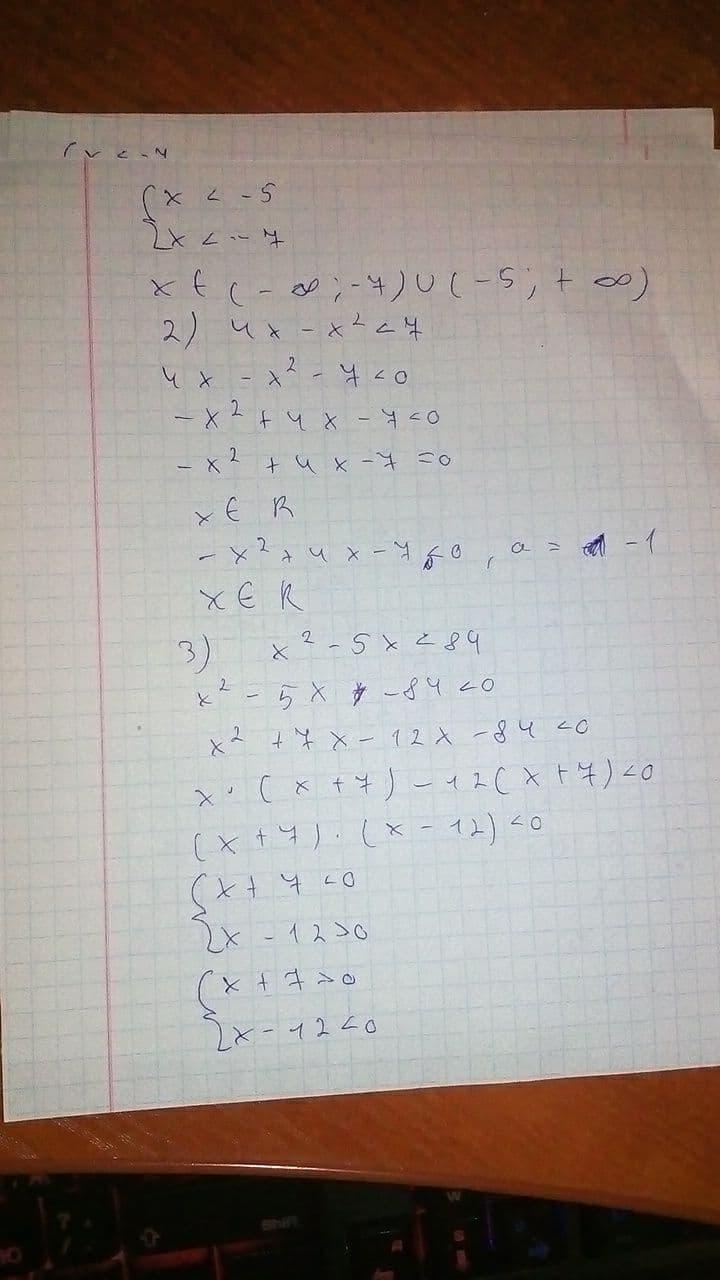 x < -5
x < -7
x ∈ (-∞; -7) ∪ (-5; +∞)
2) 4x - x² < 7
4x - x² - 7 < 0
-x² + 4x - 7 < 0
-x² + 4x - 7 = 0
x ∈ R
-x² + 4x - 7 < 0, a = -1
x ∈ R
3) x² - 5x < 84
x² - 5x - 84 < 0
x² + 7x - 12x - 84 < 0
x · (x + 7) - 12(x + 7) < 0
(x + 7) · (x - 12) < 0
{x + 7 < 0
{x - 12 > 0
{x + 7 > 0
{x - 12 < 0